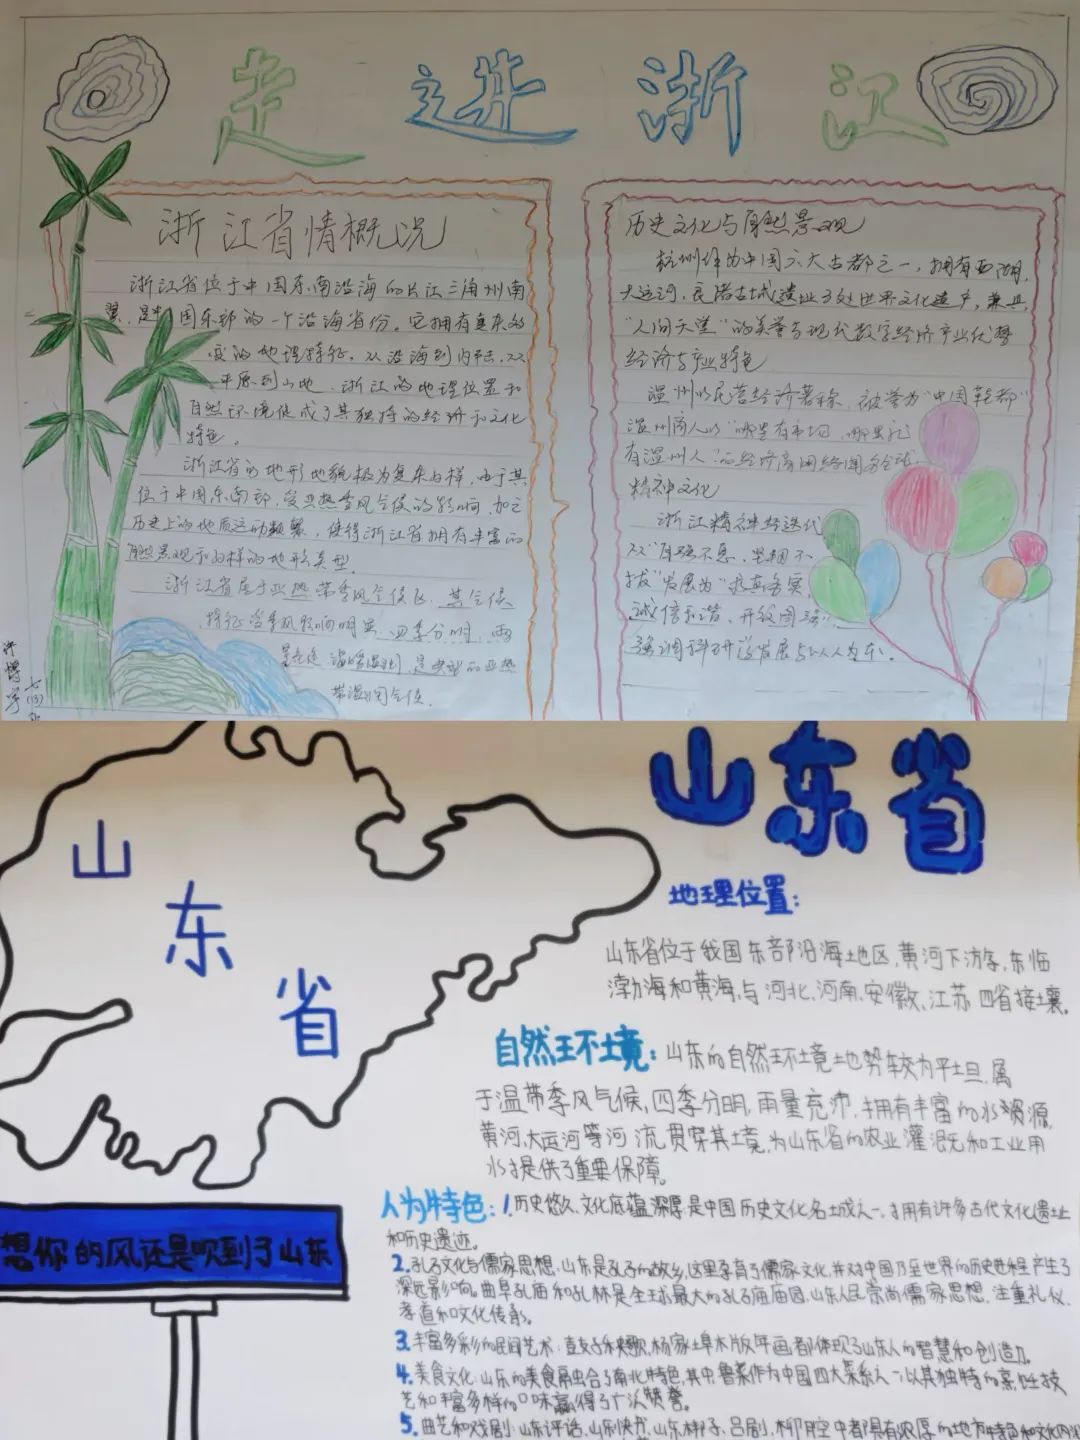 走进浙江
浙江省情概况
浙江省位于中国东南沿海的长江三角州南
翼,是中国东部的一个沿海省份。它拥有复杂的
的地理特征,从沿海到内陆,从
平原到山地,浙江的地理位置和
自然环境促成了其独特的经济和文化
特色。
浙江省的地形地貌极为复杂多样,由于其
位于中国东南部,受亚热季风气候的影响,加之
历史上的地质运动频繁,使得浙江省拥有丰富的
自然景观和多样的地形类型。
浙江省属于亚热带季风气候区,其气候
特征受季风影响明显,四季分明,雨
温暖湿润,是典型的亚热
带湿润气候。
七(13)
历史文化与自然景观
杭州作为中国六大古都之一,拥有西湖,
大运河,良渚古城遗址3处世界文化遗产,兼具,
"人间天堂"的美誉与现代数字经济产业优势
经济与产业特色
温州以民营经济著称,被誉为"中国鞋都"
温州商人以"哪里有市场,哪里就
有温州人"的经济商网络闻名全球
精神文化
浙江精神经迭代
从"自强不息,坚韧不
拔"发展为"求真务实,
诚信和谐,开放图强",
强调科研发展与以人为本。
山东省
山
东
省
地理位置:
山东省位于我国东部沿海地区,黄河下游,东临
渤海和黄海,与河北,河南,安徽,江苏四省接壤。
自然环境:山东的自然环境地势较为平坦,属
于温带季风气候,四季分明,雨量充沛,拥有丰富的水资源,
黄河,大运河等河流贯穿其境,为山东省的农业灌溉和工业用
水提供了重要保障。
想你的风还是吹到了山东
人为特色:1.历史悠久,文化底蕴深厚,是中国历史文化名城之一,拥有许多古代文化遗址
和历史遗迹。
2.孔子文化与儒家思想:山东是孔子的故乡,这里孕育了儒家文化,并对中国乃至世界的历史进程产生了
深远影响。曲阜孔庙和孔林是全球最大的孔子庙庙园,山东人民崇尚儒家思想,注重礼仪,
孝道和文化传承。
3.丰富多彩的民间艺术:鼓子秧歌,杨家埠木版年画都体现了山东人的智慧和创造力。
4.美食文化:山东的美食融合了南北特色,其中鲁菜作为中国四大菜系之一,以其独特的烹饪技
艺和丰富多样的口味赢得了广泛赞誉。
5.曲艺和戏剧:山东评话,山东快书,山东梆子,吕剧,柳腔空中都具有浓厚的地方特色和文化内